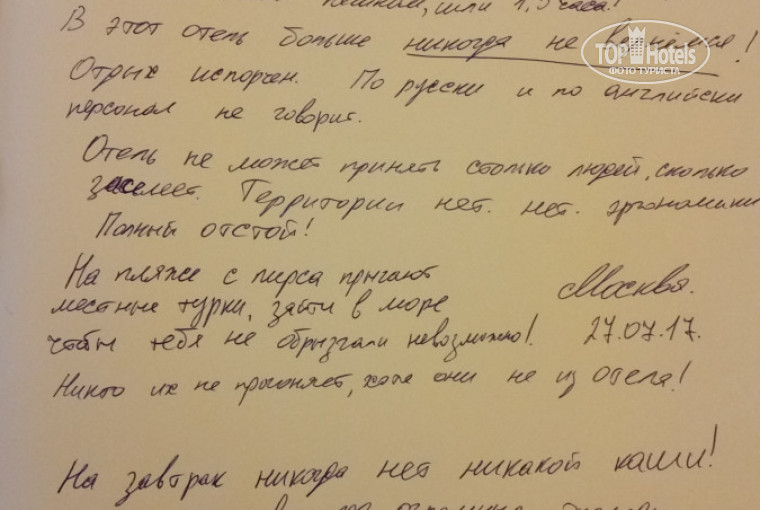 пешком, шли 1,5 часа!
В этот отель больше никогда не вернёмся!
TOP Hotels
ФОТО ТУРИСТА
Отдых испорчен. По русски и по английски
персонал не говорит.
Отель не может принять столько людей, сколько
заселяет. Территории нет. нет. эргономики
Полный отстой!
На пляже с пирса прыгают
местные турки, зайти в море
чтобы тебя не обрызгали невозможно!
Москва.
27.07.17.
Никто их не прогоняет, хотя они не из отеля!
На завтрак никогда нет никакой каши!